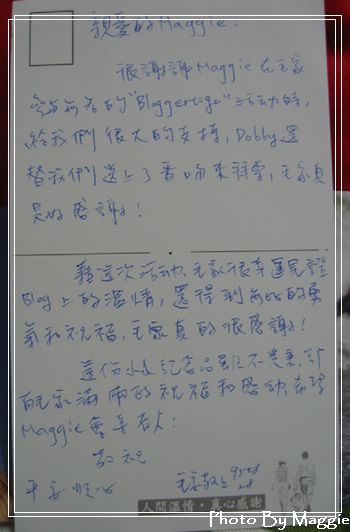 親愛的Maggie.
很謝謝Maggie在毛家
參與無名的"Bloggertogo"活動時,
給我們很大的支持, Dobby還
替我們送上了香吻來拜票, 毛家真
是好感謝!
藉這次活動, 毛家很幸運見證
Blog上的溫情, 還得到無比的勇
氣和祝福, 毛家真的很感謝!
這份小小紀念品雖不貴重, 卻
有毛家滿滿的祝福和感動, 希望
Maggie會喜歡!
敬祝
平安順心 毛家敬上
人間溫情.真心感謝
Photo By Maggie